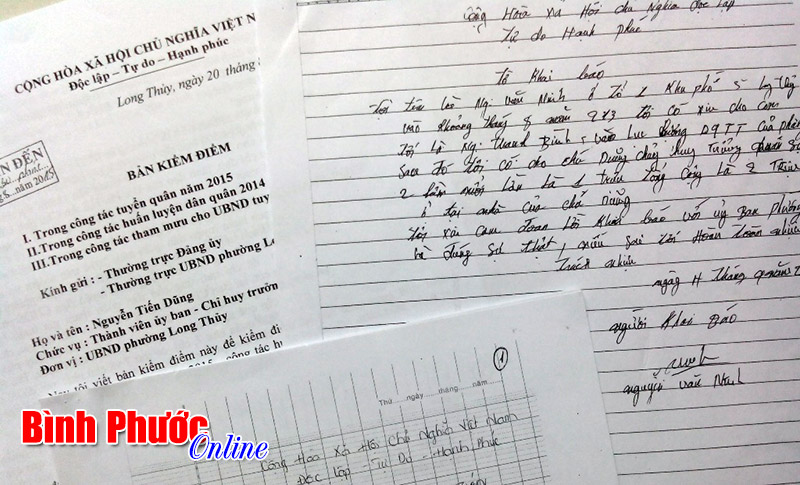 CỘNG HÒA XÃ HỘI CHỦ NGHĨA VIỆT N
Độc lập – Tự do – Hạnh phúc
Long Thủy, ngày 20 tháng
N ĐẾN
năm 2015
BẢN KIỂM ĐIỂM
I. Trong công tác tuyển quân năm 2015
II. Trong công tác huấn luyện dân quân 2014
III. Trong công tác tham mưu cho UBND tuy
Kính gửi : - Thường trực Đảng ủy
- Thường trực UBND phường Long
Họ và tên : Nguyễn Tiến Dũng
Chức vụ : Thành viên ủy ban - Chỉ huy trưởn
Đơn vị : UBND phường Long Thủy
tôi viết bản kiểm điểm này để kiểm đi
2015 công tác h
Cộng Hòa Xã Hội Chủ Nghĩa Độc lập
Tự do Hạnh Phúc
Tờ Khai báo
Tôi tên là Ng. Văn Ninh ở tổ 1 Khu phố 5
vào khoảng tháng 8 năm tôi có xin cho con
tôi là Ng. Thanh Bình vào lực lượng DQTT của
Sau đó tôi có cho chú Dũng chỉ huy Trưởng quân sự
2 lần mỗi lần là 1 triệu tổng cộng là 2 Triệu
ở tại nhà của chú Dũng
tôi xin cam đoan lời khai báo với ủy Ban phường
là đúng sự thật, nếu sai tôi hoàn toàn chịu
trách nhiệm
ngày 11 tháng 9 năm
người khai báo
nguyễn văn Ninh
1
Thứ ngày tháng năm
Cộng Hòa Xã Hội Chủ Nghĩa Việt Nam
Độc lập - Tự Do - Hạnh Phúc
Bình Phước
Online